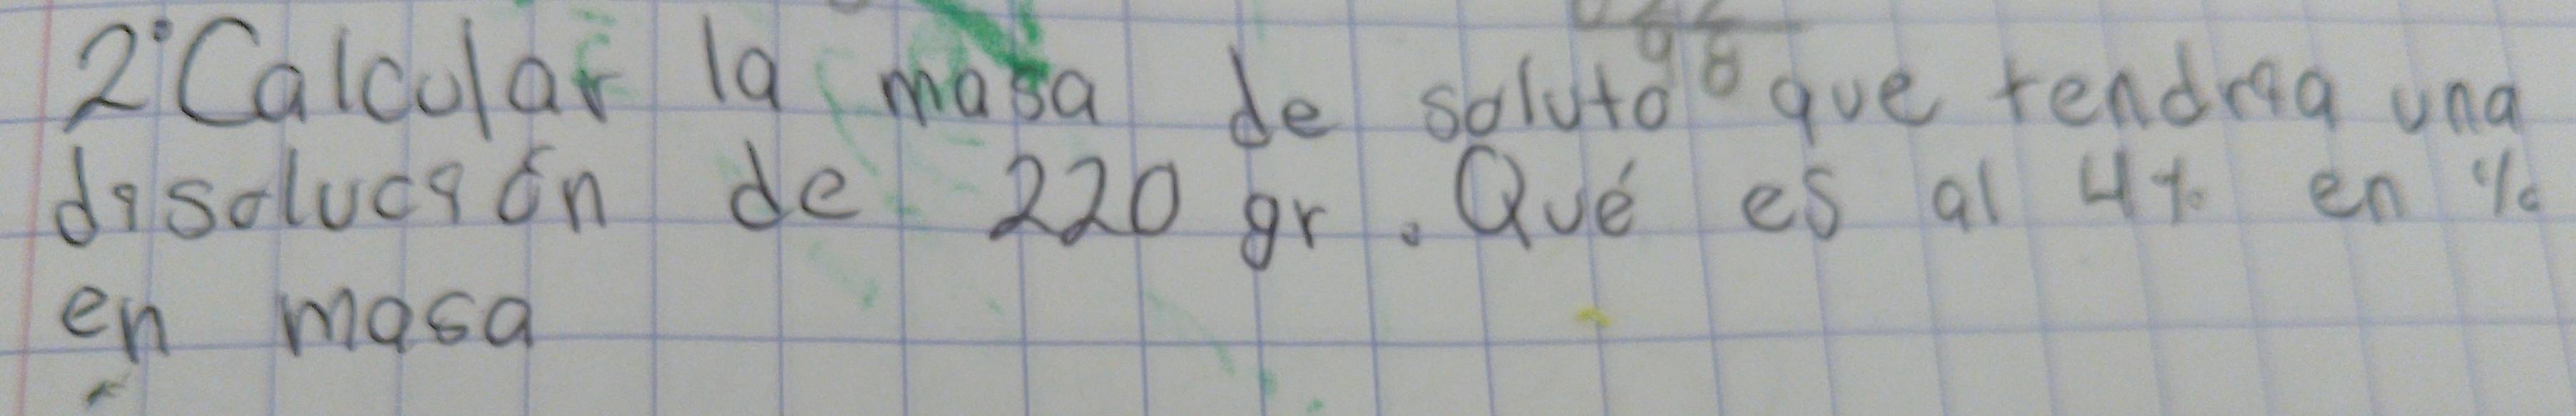 2°Calcular la masa de soluto que tendria una
disolución de 220 gr. Qué es al 4% en %
en masa